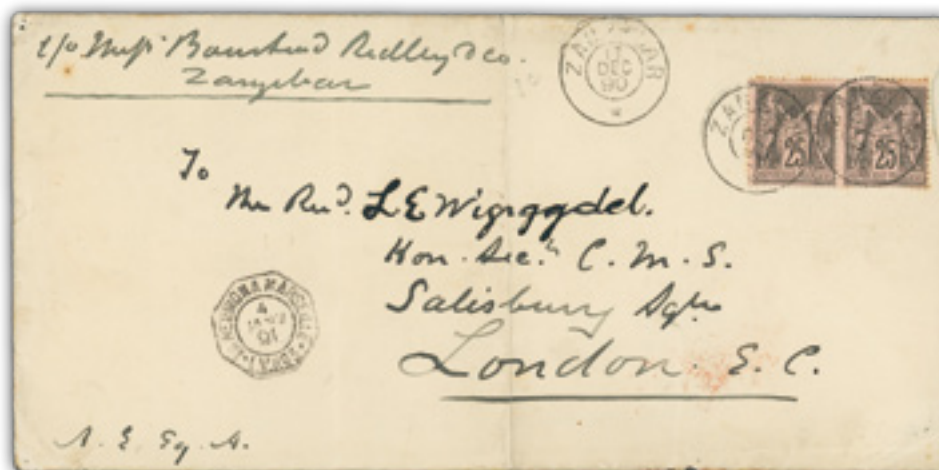 c/o Messrs Boustead Ridley & Co.
Zanzibar
ZANZIBAR
17
DEC
90
ZAN
25 25
To
The Revd. L E Wigrggdel.
Hon. Sec. C. M. S.
Salisbury Sqre
London. E. C.
LA REUNION A MARSEILLE
4
JANV
91
A. E. Eq. A.